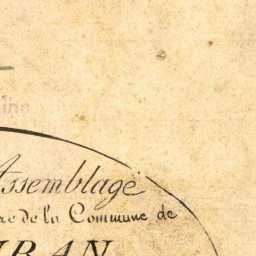 Assemblage
re de la Commune de
IRAN